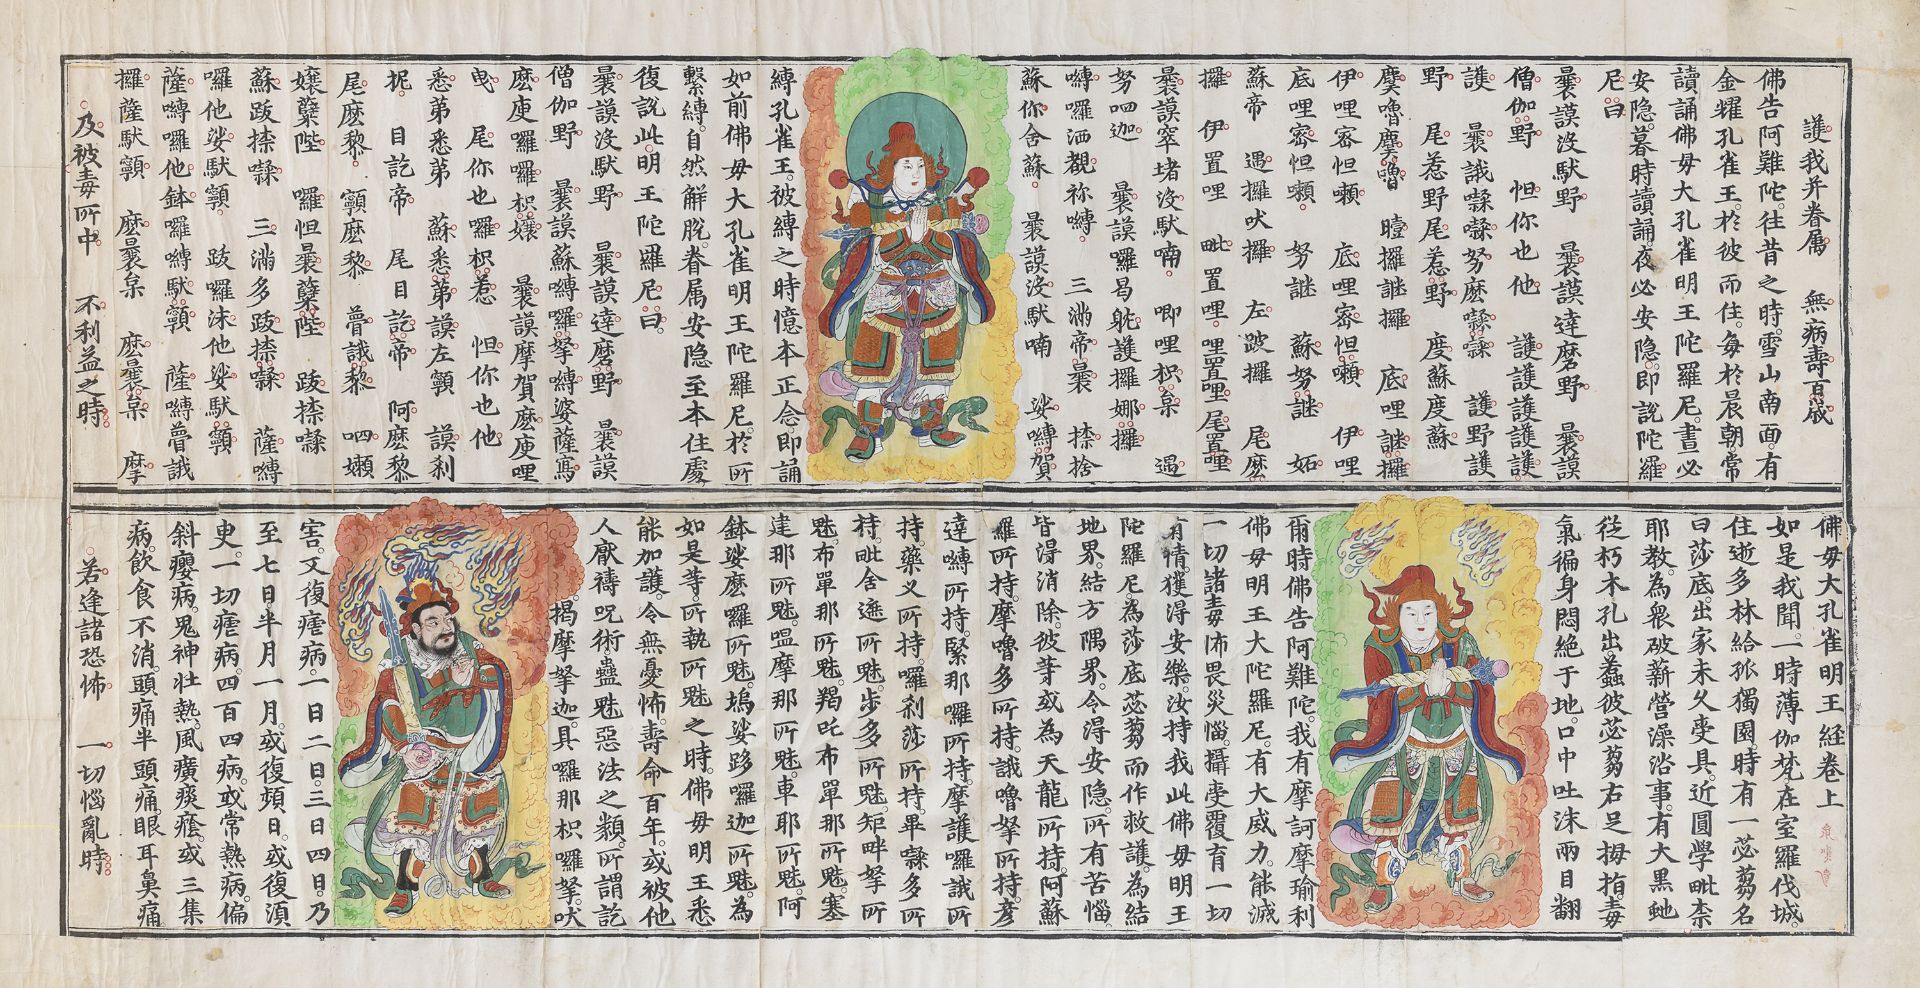 護我并眷属 無病壽百歲
佛告阿難陀。往昔之時。雪山南面。有
金耀孔雀王。於彼而住。每於晨朝。常
讀誦佛母大孔雀明王陀羅尼。晝必
安隐。暮時讀誦。夜必安隐。即説陀羅
尼曰
曩謨没馱野 曩謨達磨野 曩謨
僧伽野 怛你也他 護護護護護
護 曩誐㘑㘑努麽㘑㘑 護野護
野 尾惹野尾惹野 度蘇度蘇
麌嚕麌嚕 曀攞謎攞 底哩謎攞
伊哩蜜怛囇 底哩蜜怛囇 伊哩
底哩蜜怛囇 努謎 蘇努謎 妬
蘇帝 遇攞吠攞 左跛攞 尾麽
攞 伊置哩 毗置哩 哩置哩尾置哩
曩謨窣堵没馱喃 唧哩枳枲 遇
努呬迦 曩謨囉曷躭護攞娜攞
嚩囉洒覩祢嚩 三滿帝曩 捺捨
蘇你舍蘇 曩謨没馱喃 娑嚩賀
縛孔雀王。被縛之時。憶本正念。即誦
如前佛母大孔雀明王陀羅尼。於所
繫縛。自然解脱。眷属安隐。至本住處
復説此。明王陀羅尼。曰。
曩謨没馱野 曩謨達磨野 曩謨
僧伽野 曩謨蘇嚩囉拏嚩婆薩寫
麽庾囉囉枳孃 曩謨摩賀麽庾哩
曳 尾你也囉枳惹 怛你也他
悉弟悉弟 蘇悉弟謨左顊 謨刹
抳 目訖帝 尾目訖帝 阿麽黎
尾麽黎 顊麽黎 瞢誐黎 呬嬾
孃蘖陛 囉怛曩蘖陛 跋捺㘑
蘇跋捺㘑 三滿多跋捺㘑 薩嚩
囉他娑馱顊 跛囉沫他娑馱顊
薩嚩囉他鉢囉嚩馱顊 薩嚩瞢誐
攞薩馱顊 麽曩枲 麽曩枲 摩
及被毒所中 不利益之時
佛母大孔雀明王经卷上
如是我聞。一時薄伽梵在室羅伐城
住逝多林給孤獨園。時有一苾蒭名
曰莎底出家未久受具。近圓學毗柰
耶教。為衆破薪營澡浴事。有大黑虵
從朽木孔出。蠚彼苾蒭右足拇指。毒
氣徧身悶絶于地。口中吐沫兩目翻
爾時佛告阿難陀。我有摩訶摩瑜利
佛母明王大陀羅尼。有大威力。能滅
一切諸毒怖畏災惱。攝受覆育一切
有情。獲得安樂。汝持我此佛母明王
陀羅尼。為莎底苾蒭而作救護。為結
地界。結方隅界。令得安隐。所有苦惱
皆得消除。彼等或為天龍所持。阿蘇
羅所持。摩嚕多所持。誐嚕拏所持。彦
達嚩所持。緊那囉所持。摩護囉誐所
持。藥义所持。囉刹莎所持。畢㘑多所
持。毗舍遮所魅。步多所魅。矩畔拏所
魅。布單那所魅。羯吒布單那所魅。塞
建那所魅。嗢摩那所魅。車耶所魅。阿
鉢娑麽囉所魅。塢娑跢囉迦所魅。為
如是等。所執所魅之時。佛母明王悉
能加護。令無憂怖。壽命百年。或被他
人厭禱呪術。蠱魅惡法之類。所謂訖
揭摩拏迦。具囉那枳囉拏。吠
害。又復瘧病。一日二日。三日四日。乃
至七日。半月一月。或復頻日。或復湏
更。一切瘧病。四百四病。或常熱病。偏
斜癭病。鬼神壯熱。風癀痰癊。或三集
病。飲食不消。頭痛半頭痛眼耳鼻痛
若逢諸恐怖 一切惱亂時